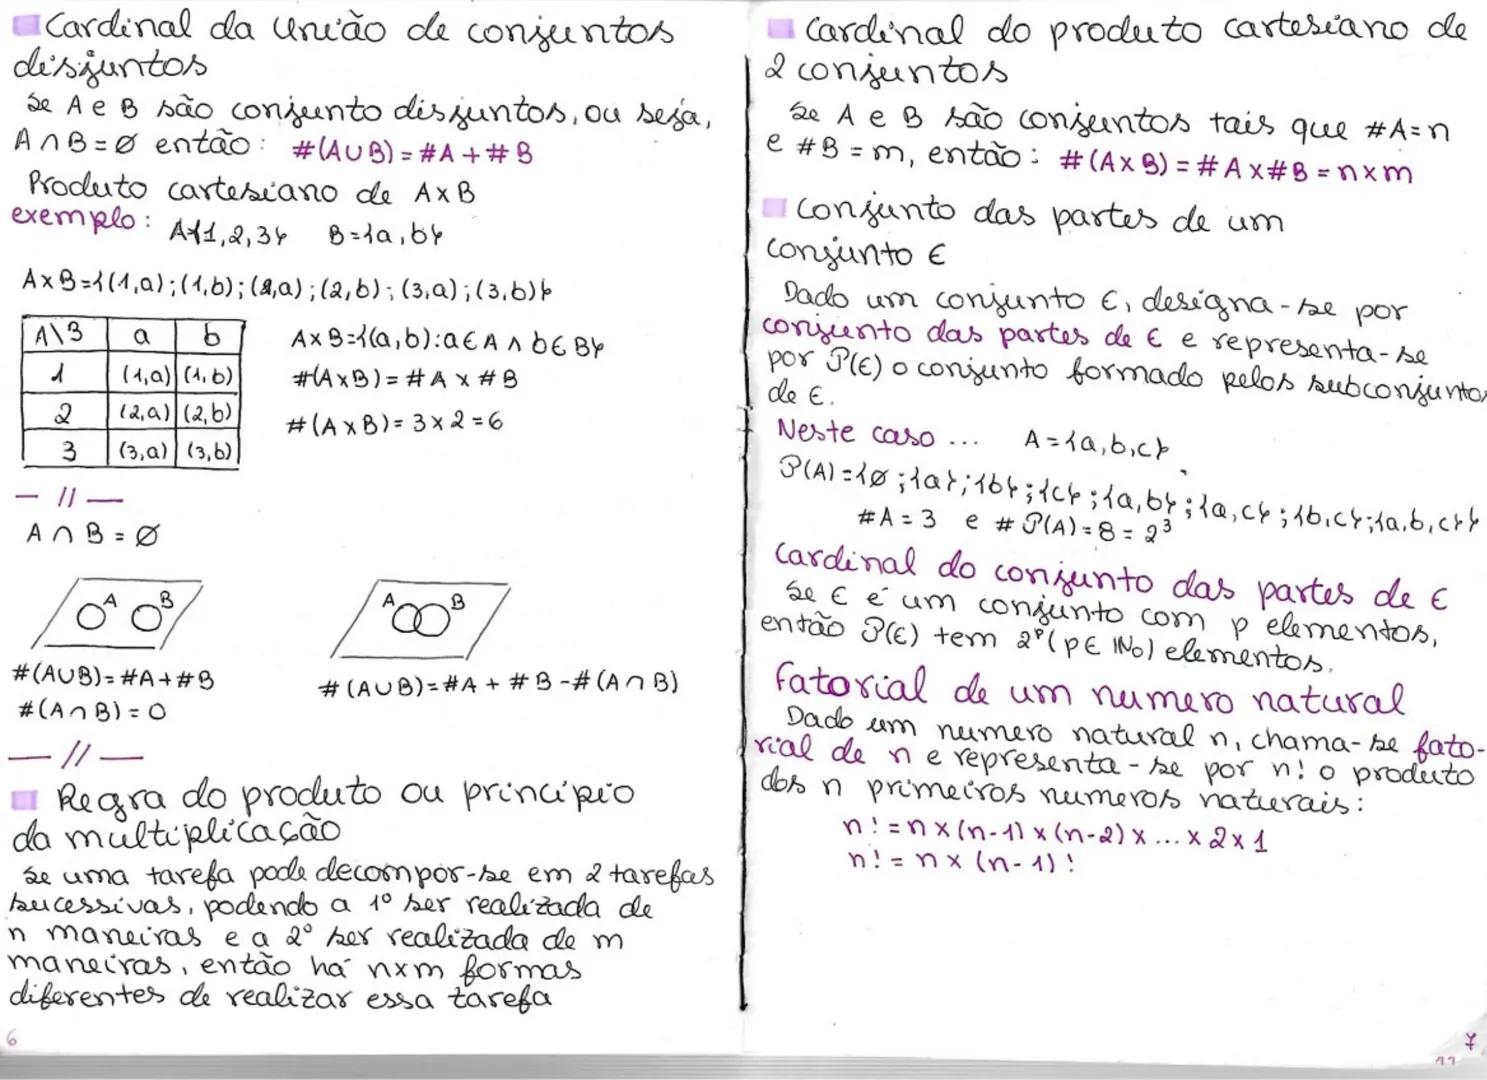 Cardinal da união de conjuntos
disjuntos
Se A e B são conjunto disjuntos, ou seja,
A∩B=∅ então: #(A∪B)=#A+#B
Produto cartesiano de A×B
exemplo: A{1,2,3} B={a,b}
A×B={(1,a);(1,b);(2,a);(2,b);(3,a);(3,b)}
A\B a b
1 (1,a) (1,b)
2 (2,a) (2,b)
3 (3,a) (3,b)
A×B={(a,b):a∈A ∧ b∈B}
#(A×B)=#A×#B
#(A×B)=3×2=6
— // —
A∩B=∅
A B
A B
#(A∪B)=#A+#B
#(A∩B)=0
#(A∪B)=#A+#B-#(A∩B)
— // —
Regra do produto ou princípio
da multiplicação
Se uma tarefa pode decompor-se em 2 tarefas
sucessivas, podendo a 1º ser realizada de
n maneiras e a 2º ser realizada de m
maneiras, então há n×m formas
diferentes de realizar essa tarefa
6
Cardinal do produto cartesiano de
2 conjuntos
Se A e B são conjuntos tais que #A=n
e #B=m, então: #(A×B)=#A×#B=n×m
Conjunto das partes de um
conjunto E
Dado um conjunto E, designa-se por
conjunto das partes de E e representa-se
por P(E) o conjunto formado pelos subconjuntos
de E.
Neste caso ... A={a,b,c}
P(A)={∅;{a};{b};{c};{a,b};{a,c};{b,c};{a,b,c}}
#A=3 e #P(A)=8=2³
Cardinal do conjunto das partes de E
Se E é um conjunto com p elementos,
então P(E) tem 2ᵖ(p∈ℕ₀) elementos.
Fatorial de um numero natural
Dado um numero natural n, chama-se fato-
rial de n e representa-se por n! o produto
dos n primeiros numeros naturais:
n!=n×(n-1)×(n-2)×...×2×1
n!=n×(n-1)!
7
11